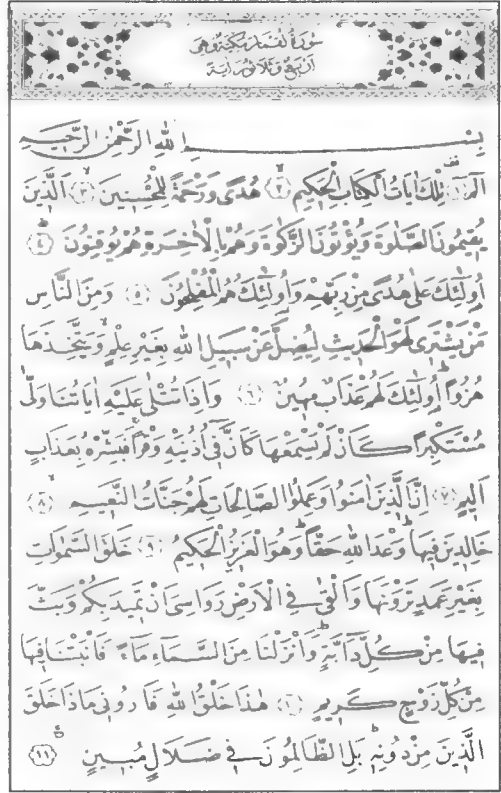 سُورَةُ لُقْمَانَ مَكِّيَّةٌ وَهِيَ
اَرْبَعٌ وَثَلَاثُونَ اٰيَةً
بِسْمِ اللّٰهِ الرَّحْمٰنِ الرَّحِيمِ
الٓمٓ ﴿١﴾ تِلْكَ اٰيَاتُ الْكِتَابِ الْحَكِيمِ ﴿٢﴾ هُدًى وَرَحْمَةً لِلْمُحْسِنِينَ ﴿٣﴾ اَلَّذِينَ
يُقِيمُونَ الصَّلٰوةَ وَيُؤْتُونَ الزَّكٰوةَ وَهُمْ بِالْاٰخِرَةِ هُمْ يُوقِنُونَ ﴿٤﴾
اُولٰٓئِكَ عَلٰى هُدًى مِنْ رَبِّهِمْ وَاُولٰٓئِكَ هُمُ الْمُفْلِحُونَ ﴿٥﴾ وَمِنَ النَّاسِ
مَنْ يَشْتَرِى لَهْوَ الْحَدِيثِ لِيُضِلَّ عَنْ سَبِيلِ اللّٰهِ بِغَيْرِ عِلْمٍ وَيَتَّخِذَهَا
هُزُوًا اُولٰٓئِكَ لَهُمْ عَذَابٌ مُهِينٌ ﴿٦﴾ وَاِذَا تُتْلٰى عَلَيْهِ اٰيَاتُنَا وَلّٰى
مُسْتَكْبِرًا كَاَنْ لَمْ يَسْمَعْهَا كَاَنَّ فِٓى اُذُنَيْهِ وَقْرًا فَبَشِّرْهُ بِعَذَابٍ
اَلِيمٍ ﴿٧﴾ اِنَّ الَّذِينَ اٰمَنُوا وَعَمِلُوا الصَّالِحَاتِ لَهُمْ جَنَّاتُ النَّعِيمِ ﴿٨﴾
خَالِدِينَ فِيهَا وَعْدَ اللّٰهِ حَقًّا وَهُوَ الْعَزِيزُ الْحَكِيمُ ﴿٩﴾ خَلَقَ السَّمٰوَاتِ
بِغَيْرِ عَمَدٍ تَرَوْنَهَا وَاَلْقٰى فِى الْاَرْضِ رَوَاسِىَ اَنْ تَمِيدَ بِكُمْ وَبَثَّ
فِيهَا مِنْ كُلِّ دَٓابَّةٍ وَاَنْزَلْنَا مِنَ السَّمَٓاءِ مَٓاءً فَاَنْبَتْنَا فِيهَا
مِنْ كُلِّ زَوْجٍ كَرِيمٍ ﴿١٠﴾ هٰذَا خَلْقُ اللّٰهِ فَاَرُونِى مَاذَا خَلَقَ
الَّذِينَ مِنْ دُونِهِ بَلِ الظَّالِمُونَ فِى ضَلَالٍ مُبِينٍ ﴿١١﴾